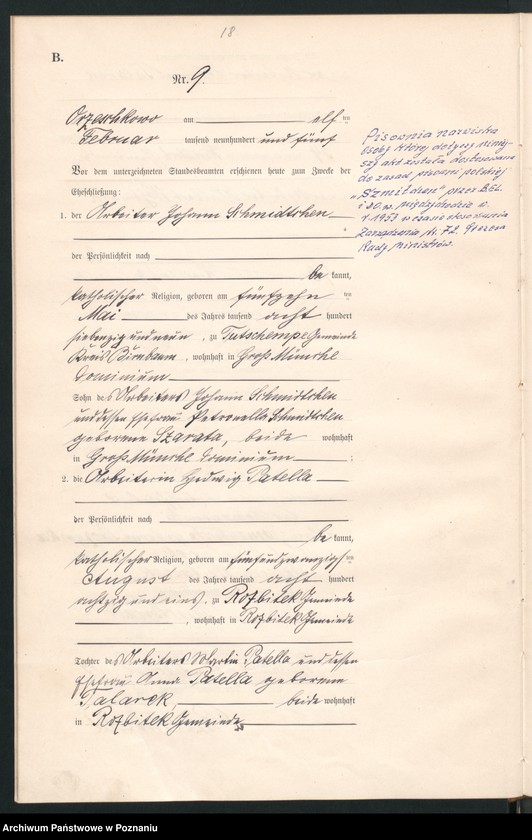 18
B.
Nr. 9.
Orzeschkowo am elf ten
Februar tausend neunhundert und fünf
Vor dem unterzeichneten Standesbeamten erschienen heute zum Zwecke der
Eheschließung:
1. der Arbeiter Johann Schmidtchen
der Persönlichkeit nach
be kannt,
katholischer Religion, geboren am fünfzehn ten
Mai des Jahres tausend acht hundert
siebenzig und neun, zu Tutschempe Gemeinde
Kreis Birnbaum, wohnhaft in Groß Münche
Dominium
Sohn des Arbeiters Johann Schmidtchen
und dessen Ehefrau Petronella Schmidtchen
geborene Szarata, beide wohnhaft
in Groß Münche Dominium ;
2. die Arbeiterin Hedwig Patella
der Persönlichkeit nach
be kannt,
katholischer Religion, geboren am fünfundzwanzigsten
August des Jahres tausend acht hundert
achtzig und eins, zu Rozbitek Gemeinde
, wohnhaft in Rozbitek Gemeinde
Tochter des Arbeiters Martin Patella und dessen
Ehefrau Anna Patella geborene
Tatarek, beide wohnhaft
in Rozbitek Gemeinde
Pisownia nazwiska
osoby której dotyczy niniej-
szy akt została dostosowana
do zasad pisowni polskiej
przez
i w Międzychodzie
1953 w czasie stosowania
Zarządzenia Nr. 72 Prezesa
Rady Ministrów.
Archiwum Państwowe w Poznaniu